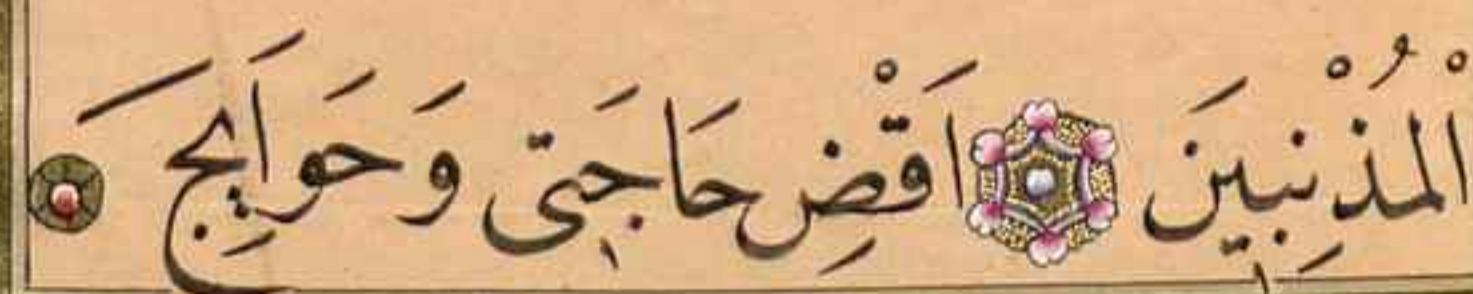 الْمُذْنِبِينَ اَقْضِ حَاجَتِى وَحَوَايِجَ